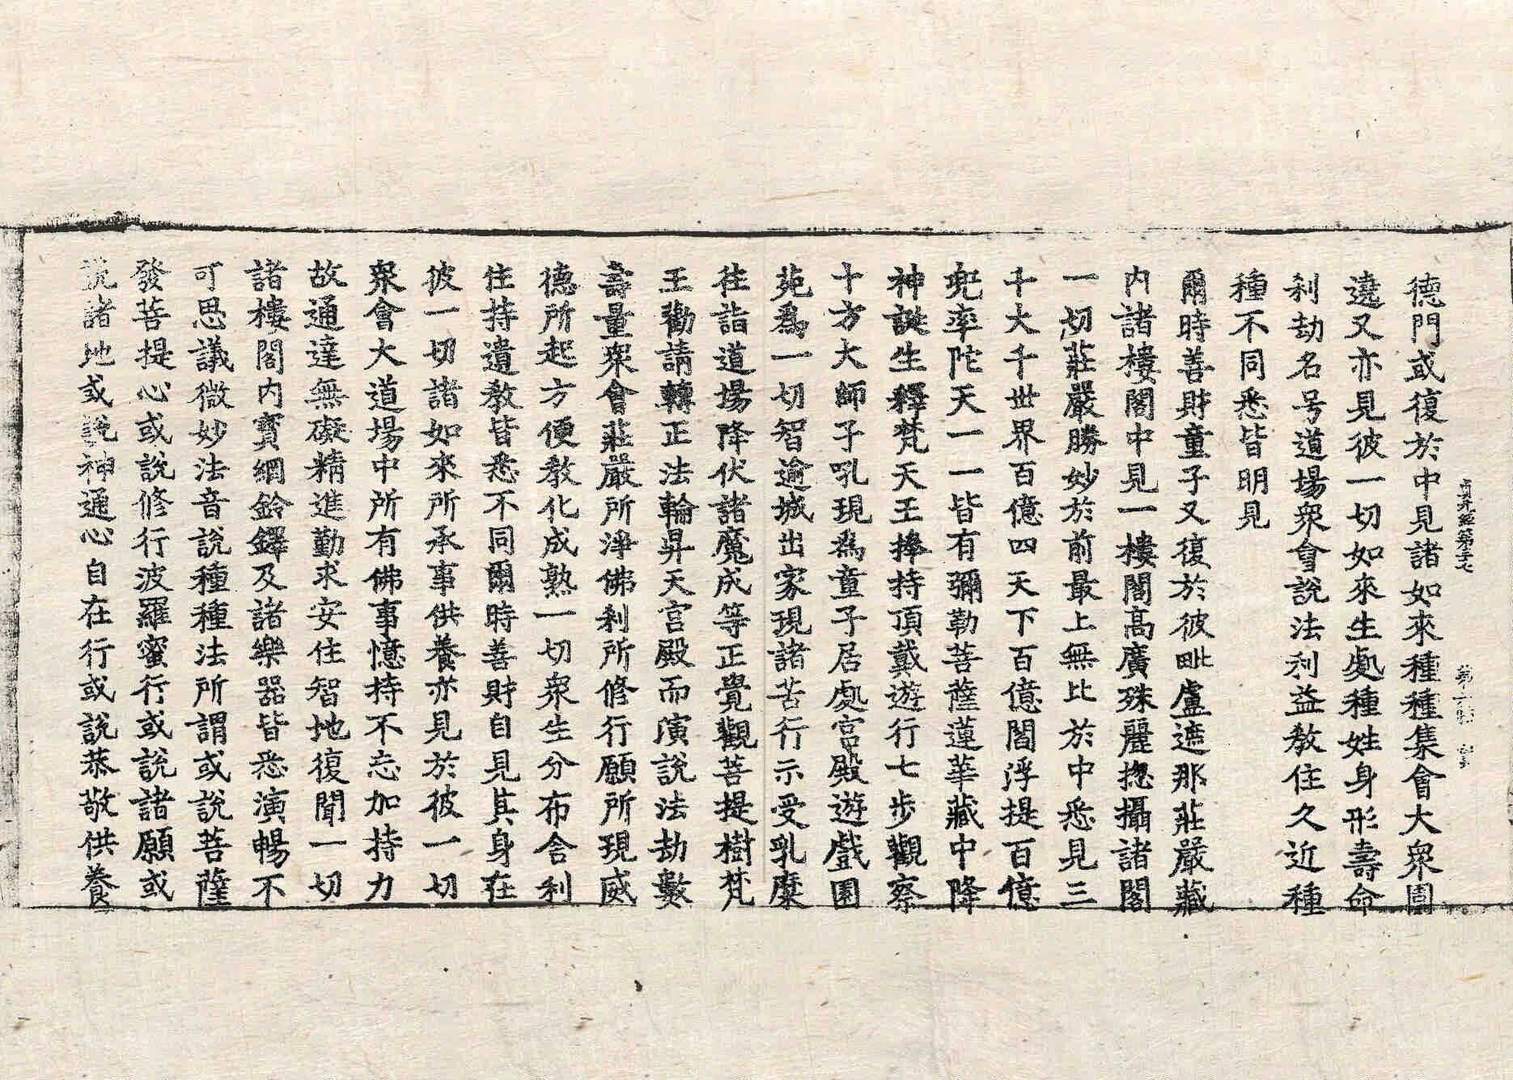 貞元經第三十七
德門或復於中見諸如來種種集會大衆圍
遶又亦見彼一切如來生處種姓身形壽命
刹劫名号道場衆會說法利益教住久近種
種不同悉皆明見
爾時善財童子又復於彼毗盧遮那莊嚴藏
内諸樓閣中見一樓閣高廣殊麗揔攝諸閣
一切莊嚴勝妙於前最上無比於中悉見三
千大千世界百億四天下百億閻浮提百億
兜率陀天一一皆有彌勒菩薩蓮華藏中降
神誕生釋梵天王捧持頂戴遊行七步觀察
十方大師子吼現爲童子居處宮殿遊戲園
苑爲一切智逾城出家現諸苦行示受乳糜
往詣道場降伏諸魔成等正覺觀菩提樹梵
王勸請轉正法輪昇天宮殿而演說法劫數
壽量衆會莊嚴所淨佛刹所修行願所現威
德所起方便教化成熟一切衆生分布舍利
住持遺教皆悉不同爾時善財自見其身在
彼一切諸如來所承事供養亦見於彼一切
衆會大道場中所有佛事憶持不忘加持力
故通達無礙精進勤求安住智地復聞一切
諸樓閣内寶網鈴鐸及諸樂器皆悉演暢不
可思議微妙法音說種種法所謂或說菩薩
發菩提心或說修行波羅蜜行或說諸願或
說諸地或說神通心自在行或說恭敬供養